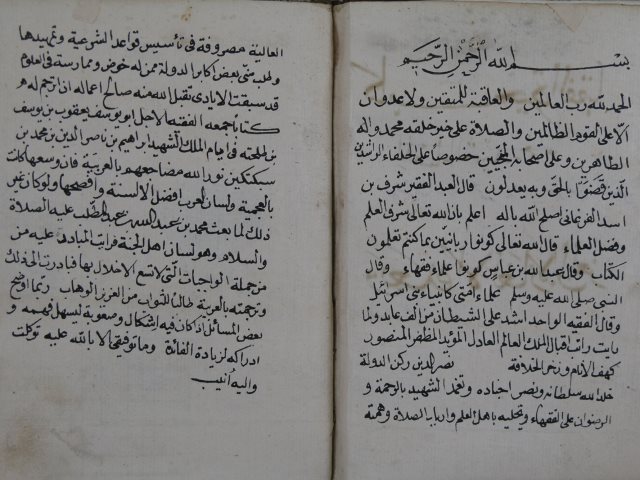 بسم الله الرحمن الرحيم
الحمد لله رب العالمين والعاقبة للمتقين ولا عدوان
الا على القوم الظالمين والصلاة على خير خلقه محمد واله
الطاهرين وعلى اصحابه خصوصا على الخلفاء الراشدين
الذين قضوا بالحق وبه يعدلون قال العبد الفقير شرف بن
اسد الفرغاني اصلح الله باله اعلم بان الله تعالى شرف العلم
وفضل العلماء قال الله تعالى كونوا ربانيين بما كنتم تعلمون
الكتاب وقال عبد الله بن عباس كونوا علماء فقهاء وقال
النبي صلى الله عليه وسلم علماء امتي كانبياء بني اسرائيل
وقال الفقيه الواحد اشد على الشيطان من الف عابد ولما
رايت اقبال الملك العالم العادل المؤيد المظفر المنصور
كهف الانام وزخر الخلافة نصر الدين ركن الدولة
خلد الله سلطانه ونصر اجناده وتغمد الشهيد بالرحمة و
الرضوان على الفقهاء وتحليه باهل العلم وارباب الصلاة وهمته
العالية مصروفة في تأسيس قواعد الشرعية وتمهيدها
وطلب مني بعض اكابر الدولة ممن له خوض وممارسة في العلوم
قد سبقت الايادي تقبل الله منه صالح اعماله ان اترجم له
كتابا جمعه الفقيه الاجل ابو يوسف يعقوب بن يوسف
بن طلحة في ايام الملك الشهيد ابراهيم بن ناصر الدين بن محمد بن
سبكتكين نور الله مضاجعهم بالعربية فان وسعها كان
بالعجمية ولسان العرب افضل الالسنة وافصحها ولو كان غير
ذلك لما بعث محمد بن عبد الله بن عبد المطلب عليه الصلاة
والسلام وهو لسان اهل الجنة فرايت المبادرة عليه من
من جملة الواجبات التي لا تسع الاخلال بها فبادرت الى ذلك
وترجمته بالعربية طالبا للثواب من العزيز الوهاب ربما اوضح
بعض المسائل اذا كان فيه اشكال وصعوبة ليسهل فهمه و
ادراكه لزيادة الفائدة وما توفيقي الا بالله عليه توكلت
واليه انيب